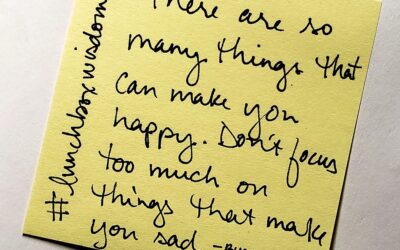 There are so
many things that
can make you
happy. Don't focus
too much on
things that make
you sad
#lunchboxwisdom